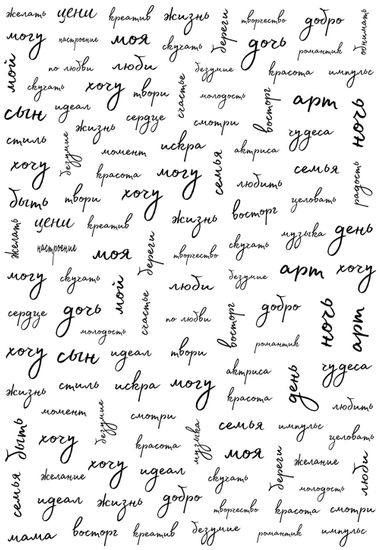 желать цени креатив жизнь береги творчество добро
могу настроение моя скучать дочь романтик обнимать
мой по любви люби безумие красота импульс
скучать хочу твори счастье молодость восторг арт ночь
сын идеал сердце смотри
стиль жизнь искра актриса чудеса
хочу безумие момент могу семья семья
красота любить радость
быть твори хочу целовать
желать цени креатив жизнь восторг музыка день
настроение моя береги творчество скучать
могу скучать мой люби безумие арт хочу
сердце дочь счастье по любви восторг добро ночь
молодость романтик арт
хочу сын идеал твори чудеса
жизнь стиль искра могу актриса день
момент безумие смотри красота любить
быть хочу музыка семья импульс целовать
красота моя
семья хочу идеал скучать береги желание люби
желание молодость
идеал жизнь добро творчество красота смотри
мама восторг креатив безумие романтик импульс